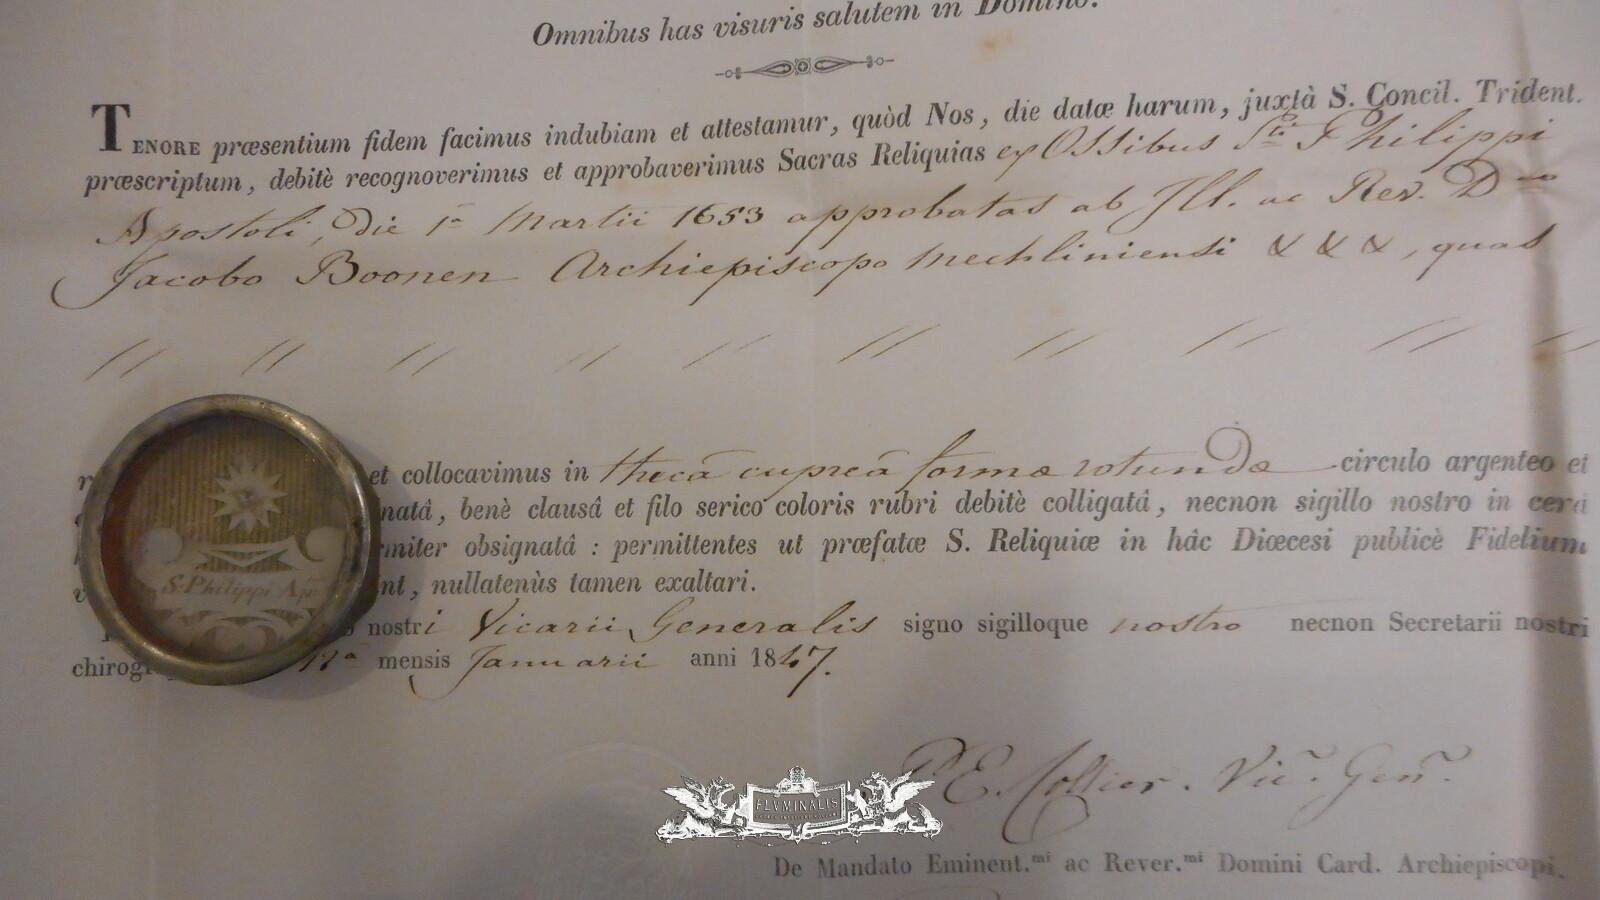 Omnibus has visuris salutem in Domino.
TENORE præsentium fidem facimus indubiam et attestamur, quòd Nos, die datæ harum, juxtà S. Concil. Trident.
præscriptum, debitè recognoverimus et approbaverimus Sacras Reliquias ex Ossibus Sti Philippi
Apostoli, die 1a Martii 1653 approbatas ab Ill. ac Rev. Dno
Jacobo Boonen Archiepiscopo Mechliniensi & & &, quas
// // // // // // // // // //
et collocavimus in thecâ cupreâ formæ rotundæ circulo argenteo et
natâ, benè clausâ et filo serico coloris rubri debitè colligatâ, necnon sigillo nostro in cerâ
rmiter obsignatâ : permittentes ut præfatæ S. Reliquiæ in hâc Diœcesi publicè Fidelium
nt, nullatenùs tamen exaltari.
S. Philippi Ap
nostri Vicarii Generalis signo sigilloque nostro necnon Secretarii nostri
chirog mensis Januarii anni 1847.
P E. Collier. Vic. Gen.
FLVMINALIS
De Mandato Eminent.mi ac Rever.mi Domini Card. Archiepiscopi.